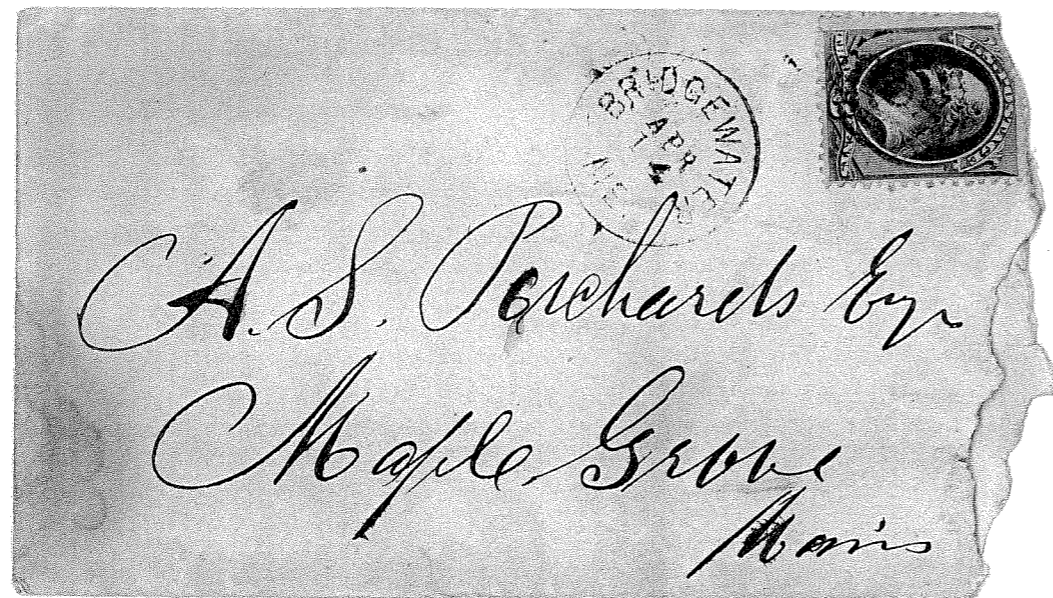 BRIDGEWATER
APR
14
ME
A. S. Richards Esq
Maple Grove
Maine